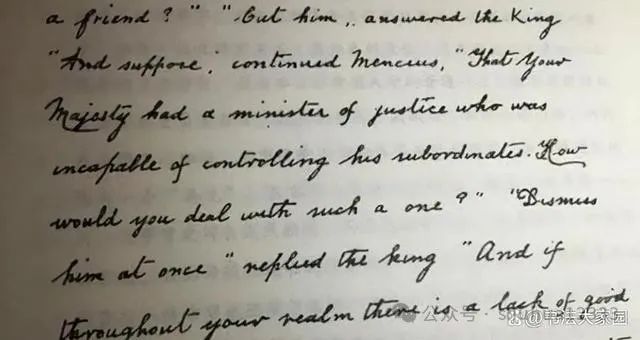 a friend?" "Cut him, answered the King
"And suppose, continued Mencius, "That Your
Majesty had a minister of justice who was
incapable of controlling his subordinates. How
would you deal with such a one?" "Dismiss
him at once" replied the king "And if
throughout your realm there is a lack of good
公众号
书法大家园